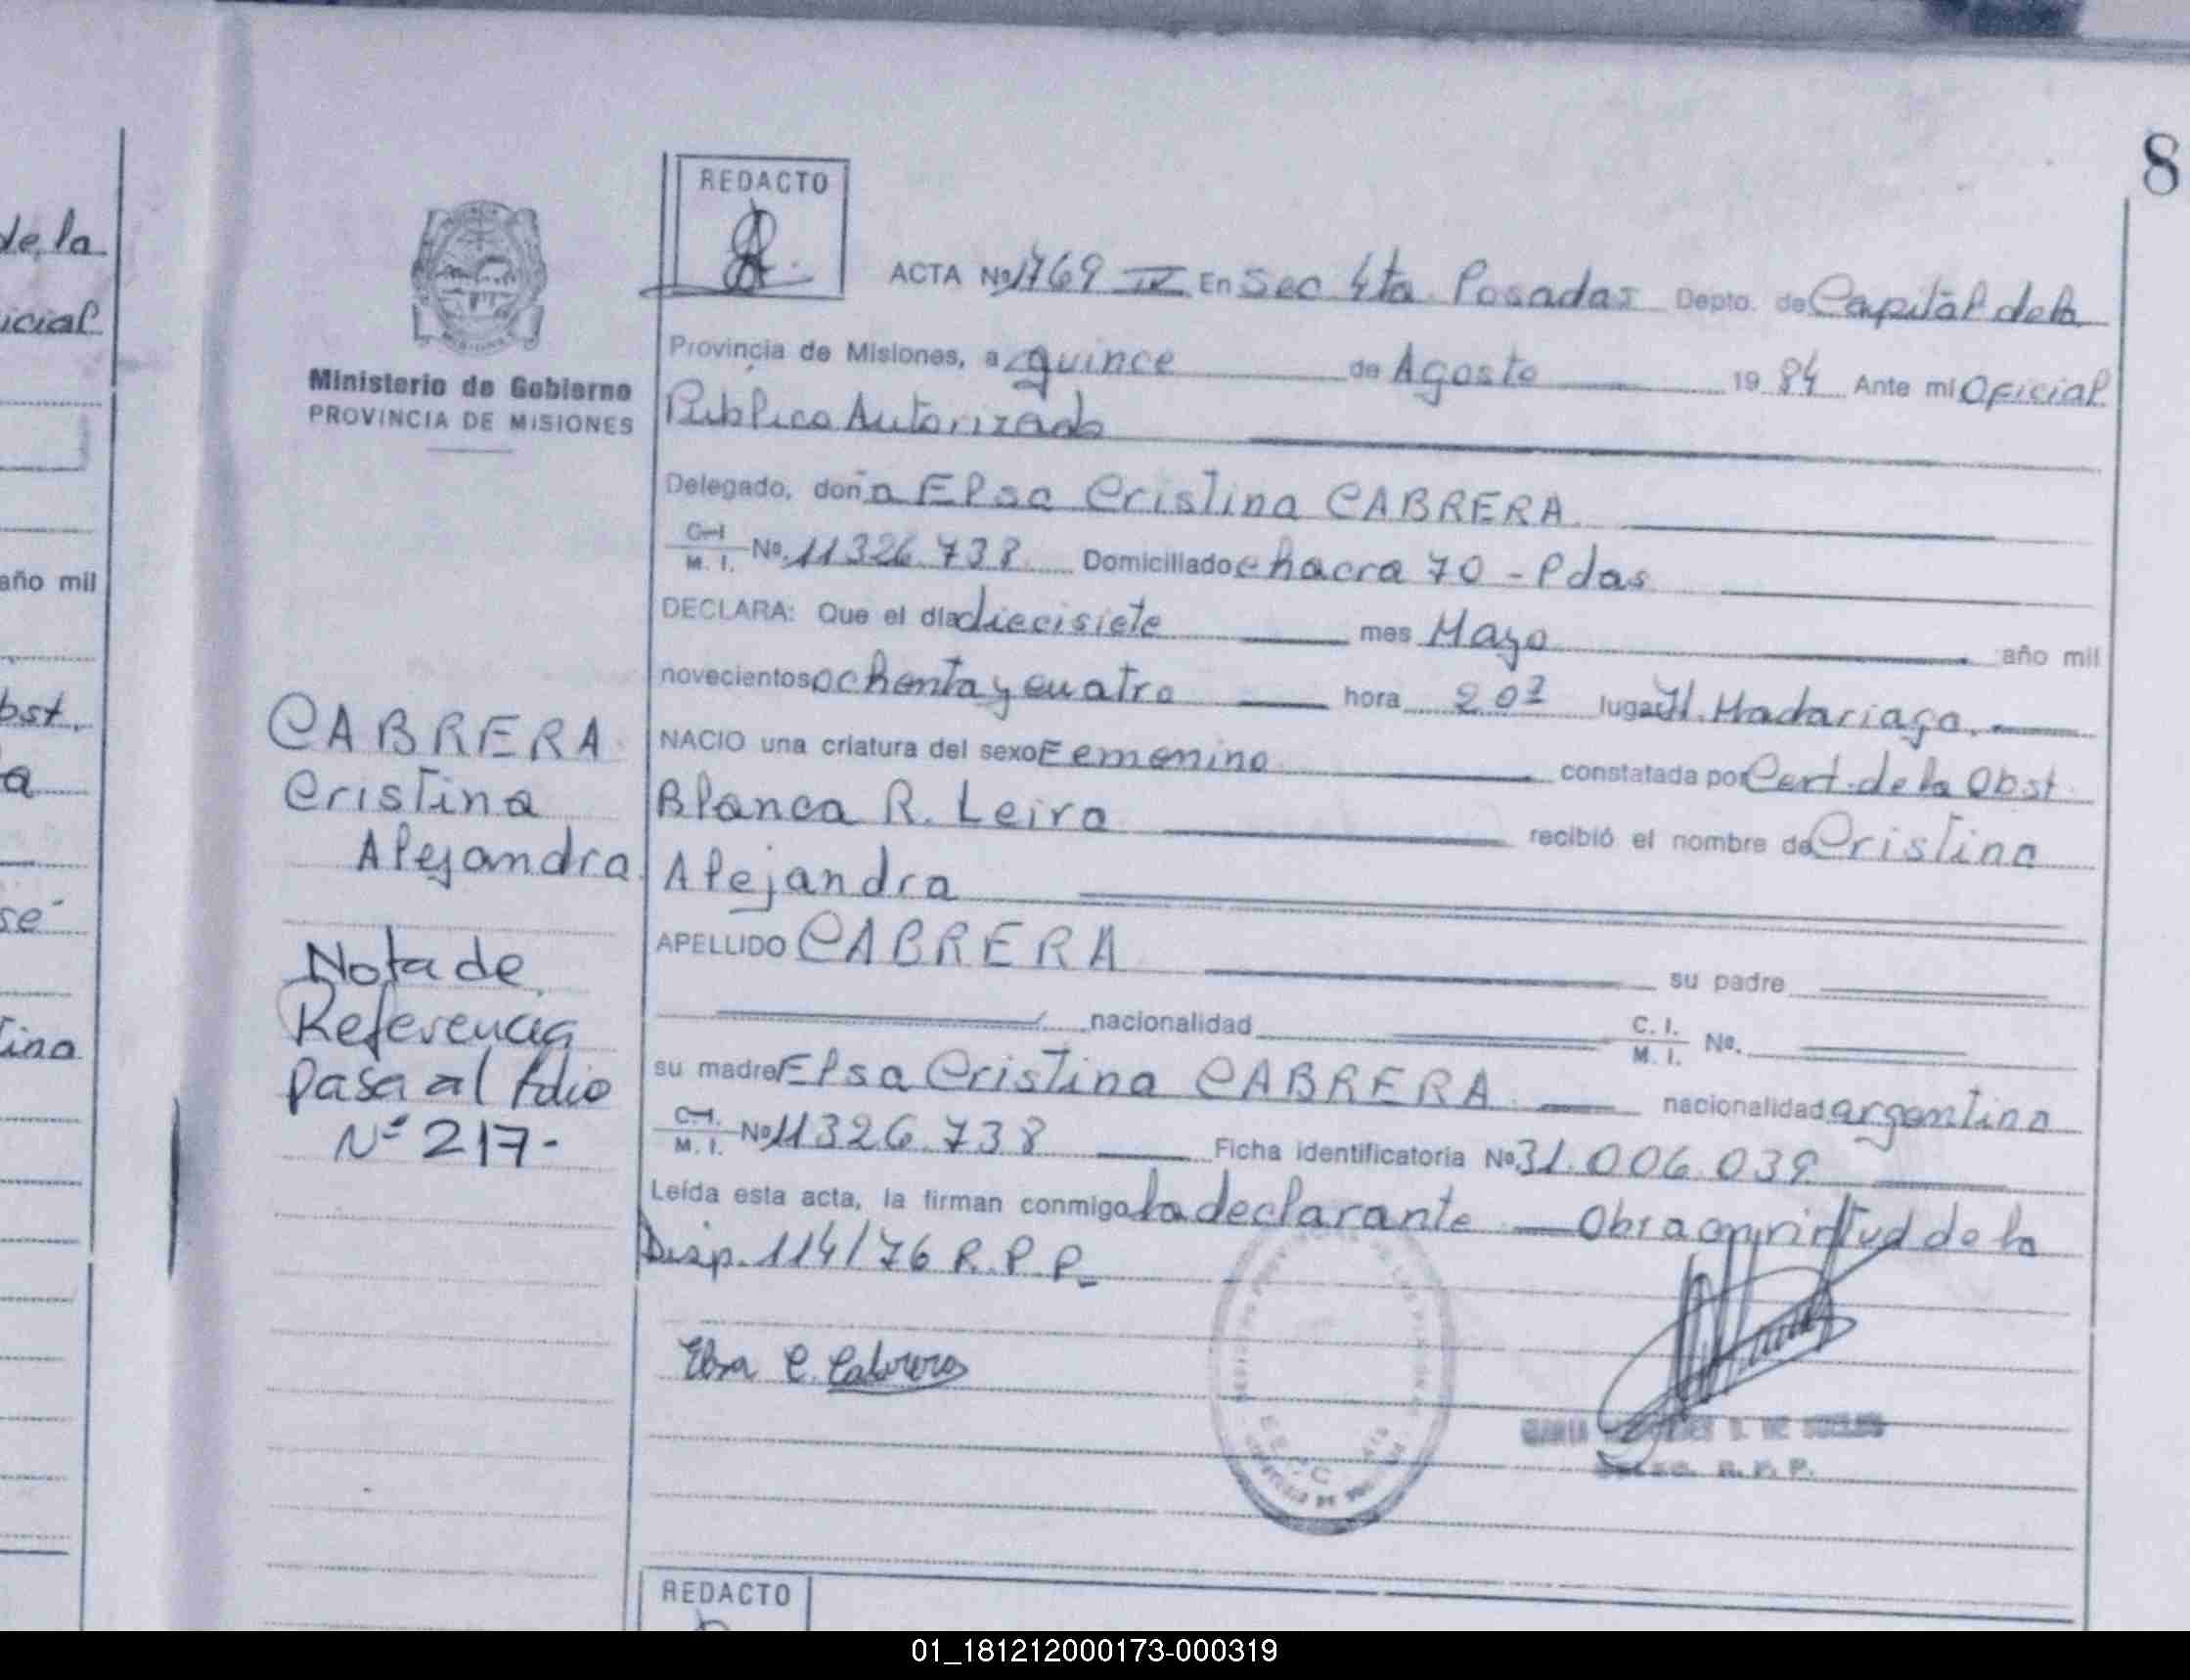 8
de la
icial
año mil
bst.
a
sé
ina
REDACTO
Ministerio de Gobierno
PROVINCIA DE MISIONES
ACTA Nº 1769 IV En Sec 4ta Posadas Depto. de Capital de la
Provincia de Misiones, a quince de Agosto 19 84 Ante mí Oficial
Publico Autorizado
Delegado, doña Elsa Cristina CABRERA
C.I. M. I. Nº. 11326.738 Domiciliado chacra 70 - Pdas
DECLARA: Que el día diecisiete mes Mayo año mil
novecientos ochenta y cuatro hora 20 lugar H. Madariaga.
NACIO una criatura del sexo Femenino constatada por Cert. de la Obst.
Blanca R. Leiva recibió el nombre de Cristina
Alejandra
APELLIDO CABRERA su padre
nacionalidad C. I. M. I. Nº.
su madre Elsa Cristina CABRERA nacionalidad argentina
C.I. M. I. Nº 11326.738 Ficha identificatoria Nº 31.006.039
Leída esta acta, la firman conmigo la declarante Obra en virtud de la
Disp. 114/76 R.P.P.
Elsa C. Cabrera
R. P. P.
CABRERA
Cristina
Alejandra
Nota de
Referencia
Pasa al folio
Nº 217-
REDACTO
01_181212000173-000319